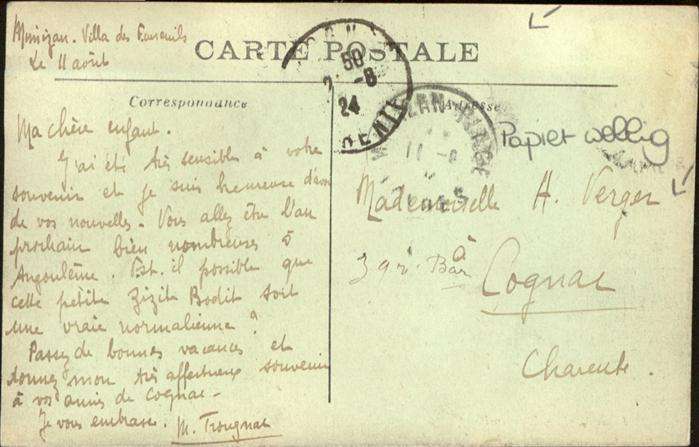 Mimizan. Villa des Fauvenils
Le 11 août
CARTE POSTALE
Correspondance
Adresse
Ma chère enfant.
J'ai été très sensible à votre
souvenir et je suis heureuse d'avoir
de vos nouvelles. Vous allez être l'an
prochain bien nombreuses à
Angoulême. Est-il possible que
cette petite Zizite Bodit soit
une vraie normalienne ?
Passez de bonnes vacances et
donnez mon très affectueux souvenir
à vos amies de Cognac.
Je vous embrasse. M. Trougnac
50
-8
24
Papier wellig
Mademoiselle H. Verger
à
Cognac
Charente.